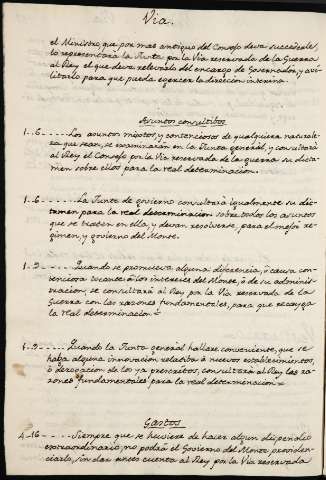 Via.
el Ministro, que por mas antiguo del Consejo deva succederle,
lo representará la Junta por la Via reservada de la Guerra
al Rey, el que deva relevarlo del encargo de Governador, y avi-
litarlo para que pueda egercer la direccion interina.
Asuntos consultibos
1..6.....Los asuntos mixtos, y contenciosos de qualquiera naturale-
za que sean, se examinarán en la Junta general, y consultará
al Rey el Consejo por la Via reservada de la guerra su dicta-
men sobre ellos para la real determinacion.
1..6.....La Junta de govierno consultará igualmente su dic-
tamen para la real determinacion sobre todos los asuntos
que se traten en ella, y devan resolverse, para el mejor re-
gimen, y govierno del Monte.
1..9.....Quando se promueva alguna diferencia, ó causa con-
tenciosa tocante á los intereses del Monte, ó de su adminis-
tracion, se consultará al Rey por la Via reservada de la
Guerra con las razones fundamentales, para que recayga
la real determinacion
1..9.....Quando la Junta general hallare conveniente, que se
haga alguna innovacion relativa á nuevos establecimientos,
ó derogacion de los ya prescritos, consultará al Rey las ra-
zones fundamentales para la real determinacion
Gastos
4..16.....Siempre que se huviere de hacer algun dispendio
extraordinario, no podrá el Govierno del Monte providen-
ciarlo, sin dar antes cuenta al Rey por la Via reservada